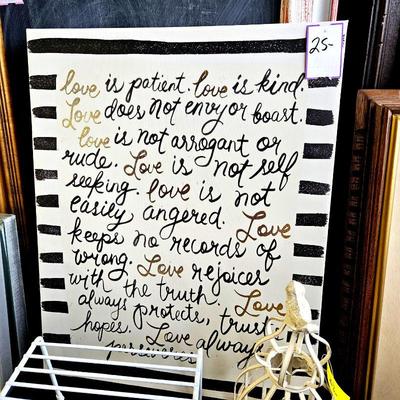 25-
love is patient. love is kind.
Love does not envy or boast.
love is not arrogant or
rude. Love is not self
seeking. love is not
easily angered. Love
keeps no records of
wrong. Love rejoices
with the truth. Love
always protects, trust
hopes. Love always
perseveres